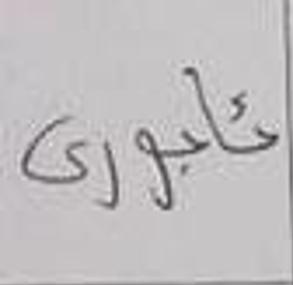 ئابوری